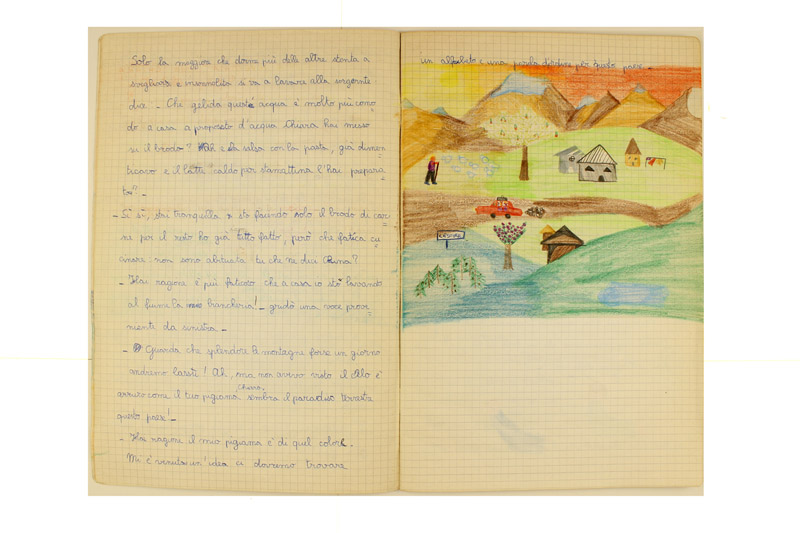 Solo la maggiore che dorme più delle altre stenta a
svegliarsi e insonnolita si va a lavare alla sorgente
dice – Che gelida questa acqua è molto più como
do a casa a proposito d'acqua Chiara hai messo
su il brodo? e la salsa con la pasta, già dimen
ticavo e il latte caldo per stamattina l'hai prepara
to? –
– Sì sì, stai tranquilla sto facendo solo il brodo di car
ne per il resto ho già tutto fatto, però che fatica cu
cinare non sono abituata tu che ne dici ?
– Hai ragione è più faticoso che a casa io sto lavando
al fiume la biancheria! – gridò una voce prove
niente da sinistra –
– Guarda che splendore le montagne forse un giorno
andremo lassù! Ah, ma non avevo visto il cielo è
azzurro come il tuo pigiama Chiara, sembra il paradiso terrestre
questo paese! –
– Hai ragione il mio pigiama è di quel colore.
Mi è venuta un'idea ci dovremo trovare
un alfabeto e una per questo paese –